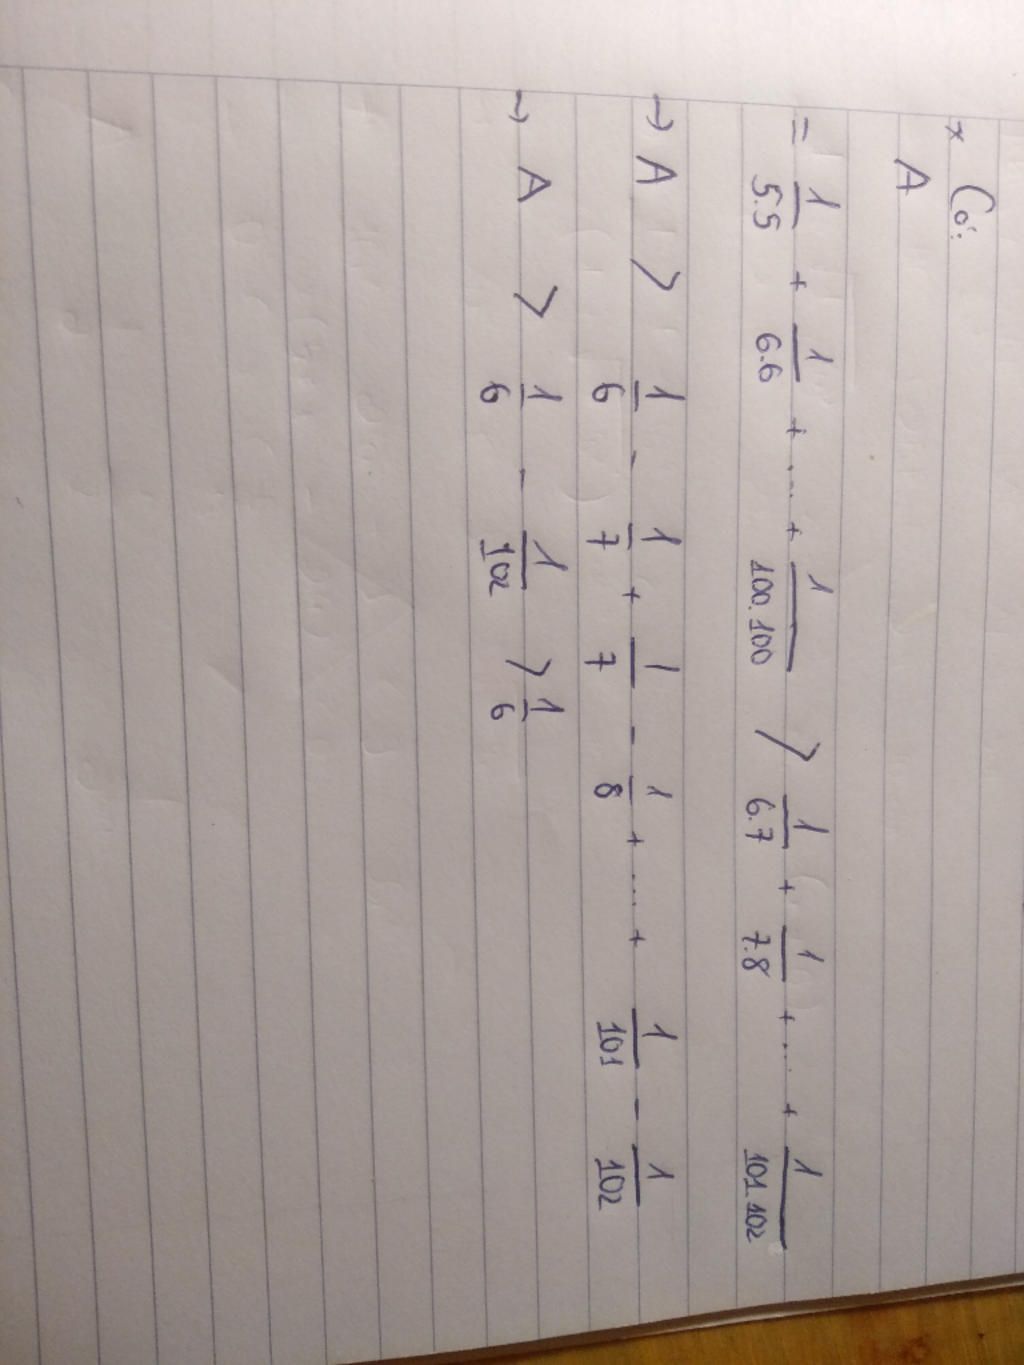 × Có:
A
= 1/5.5 + 1/6.6 + ... + 1/100.100 > 1/6.7 + 1/7.8 + ... + 1/101.102
→ A > 1/6 - 1/7 + 1/7 - 1/8 + ... + 1/101 - 1/102
→ A > 1/6 - 1/102 > 1/6